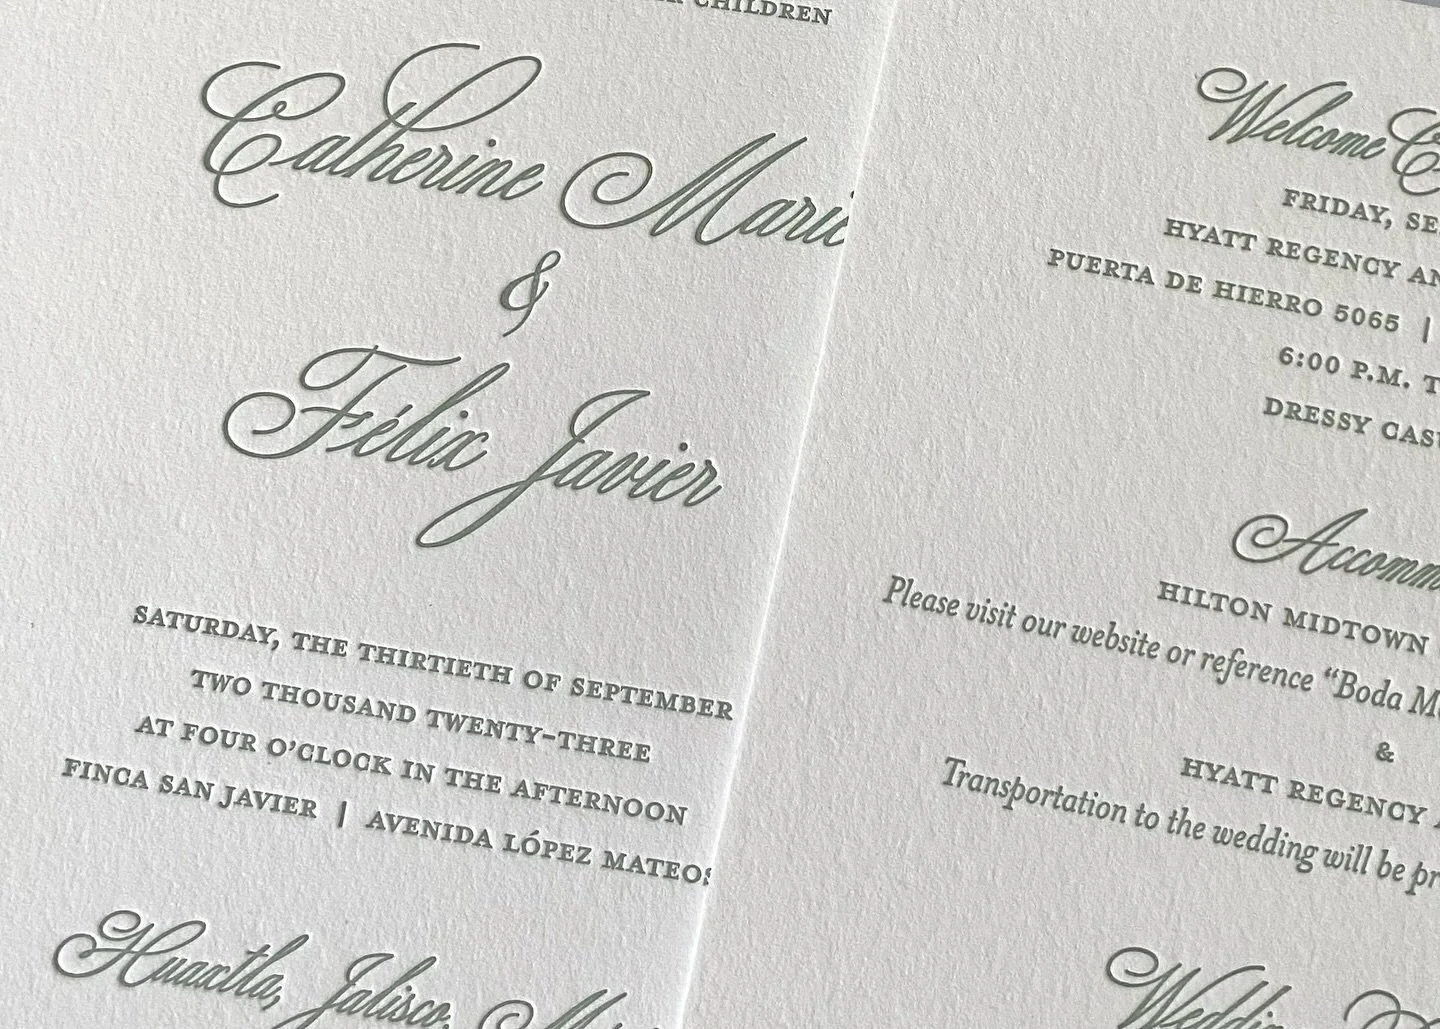 CHILDREN
Catherine Marie
&
Félix Javier
SATURDAY, THE THIRTIETH OF SEPTEMBER
TWO THOUSAND TWENTY-THREE
AT FOUR O'CLOCK IN THE AFTERNOON
FINCA SAN JAVIER | AVENIDA LÓPEZ MATEOS
Huaxtla, Jalisco,
Welcome
FRIDAY,
HYATT REGENCY
PUERTA DE HIERRO 5065 |
6:00 P.M.
DRESSY
HILTON MIDTOWN
Please visit our website or reference “Boda
&
HYATT REGENCY
Transportation to the wedding will be
Wedding